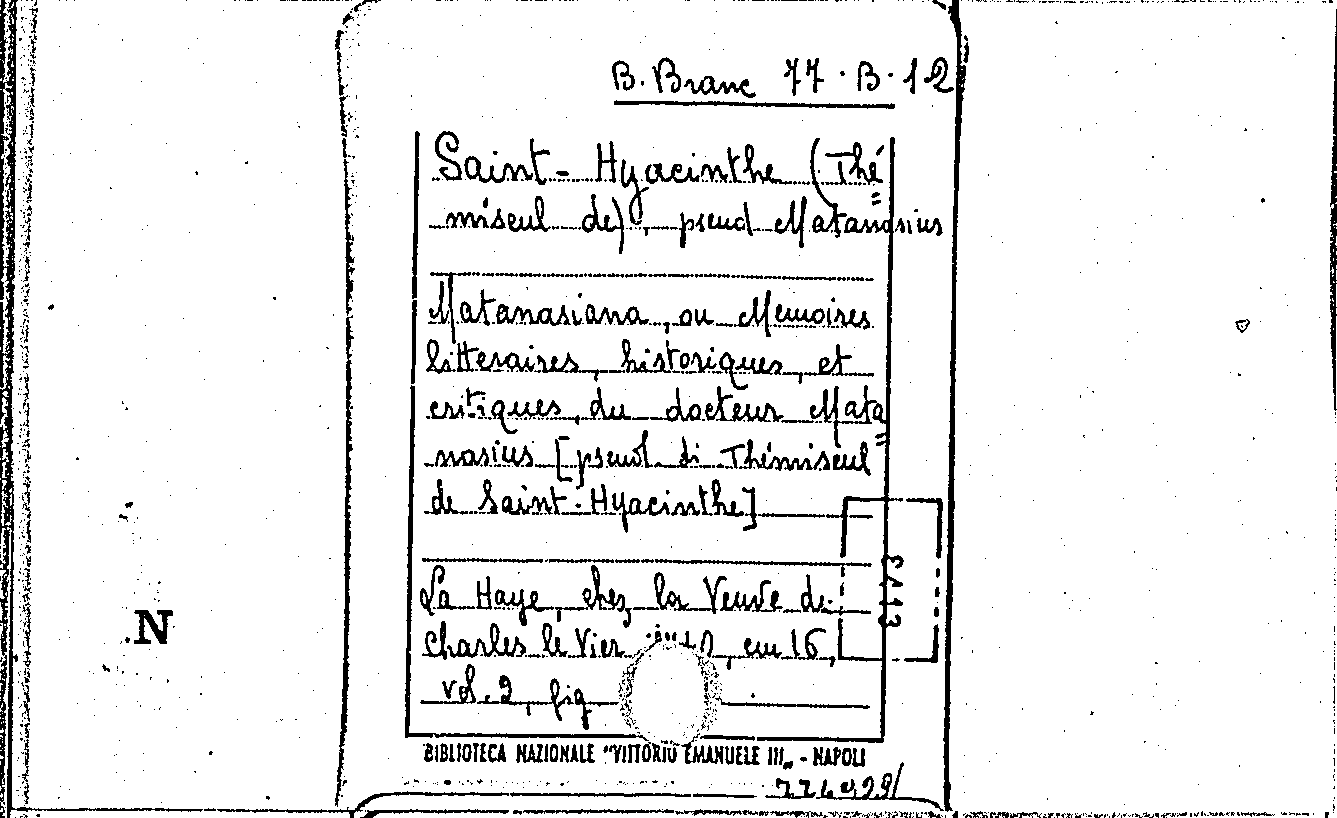 B. Branc 77·B·12
Saint-Hyacinthe (Thé=
miseul de), pseud Matanasius
Matanasiana, ou Memoires
litteraires, historiques, et
critiques, du docteur Mata=
nasius [pseud. di Thémiseul
de Saint-Hyacinthe]
La Haye, chez la Veuve de
Charles le Vier, in 16,
vol. 2, fig
N
BIBLIOTECA NAZIONALE "VITTORIO EMANUELE III„ - NAPOLI